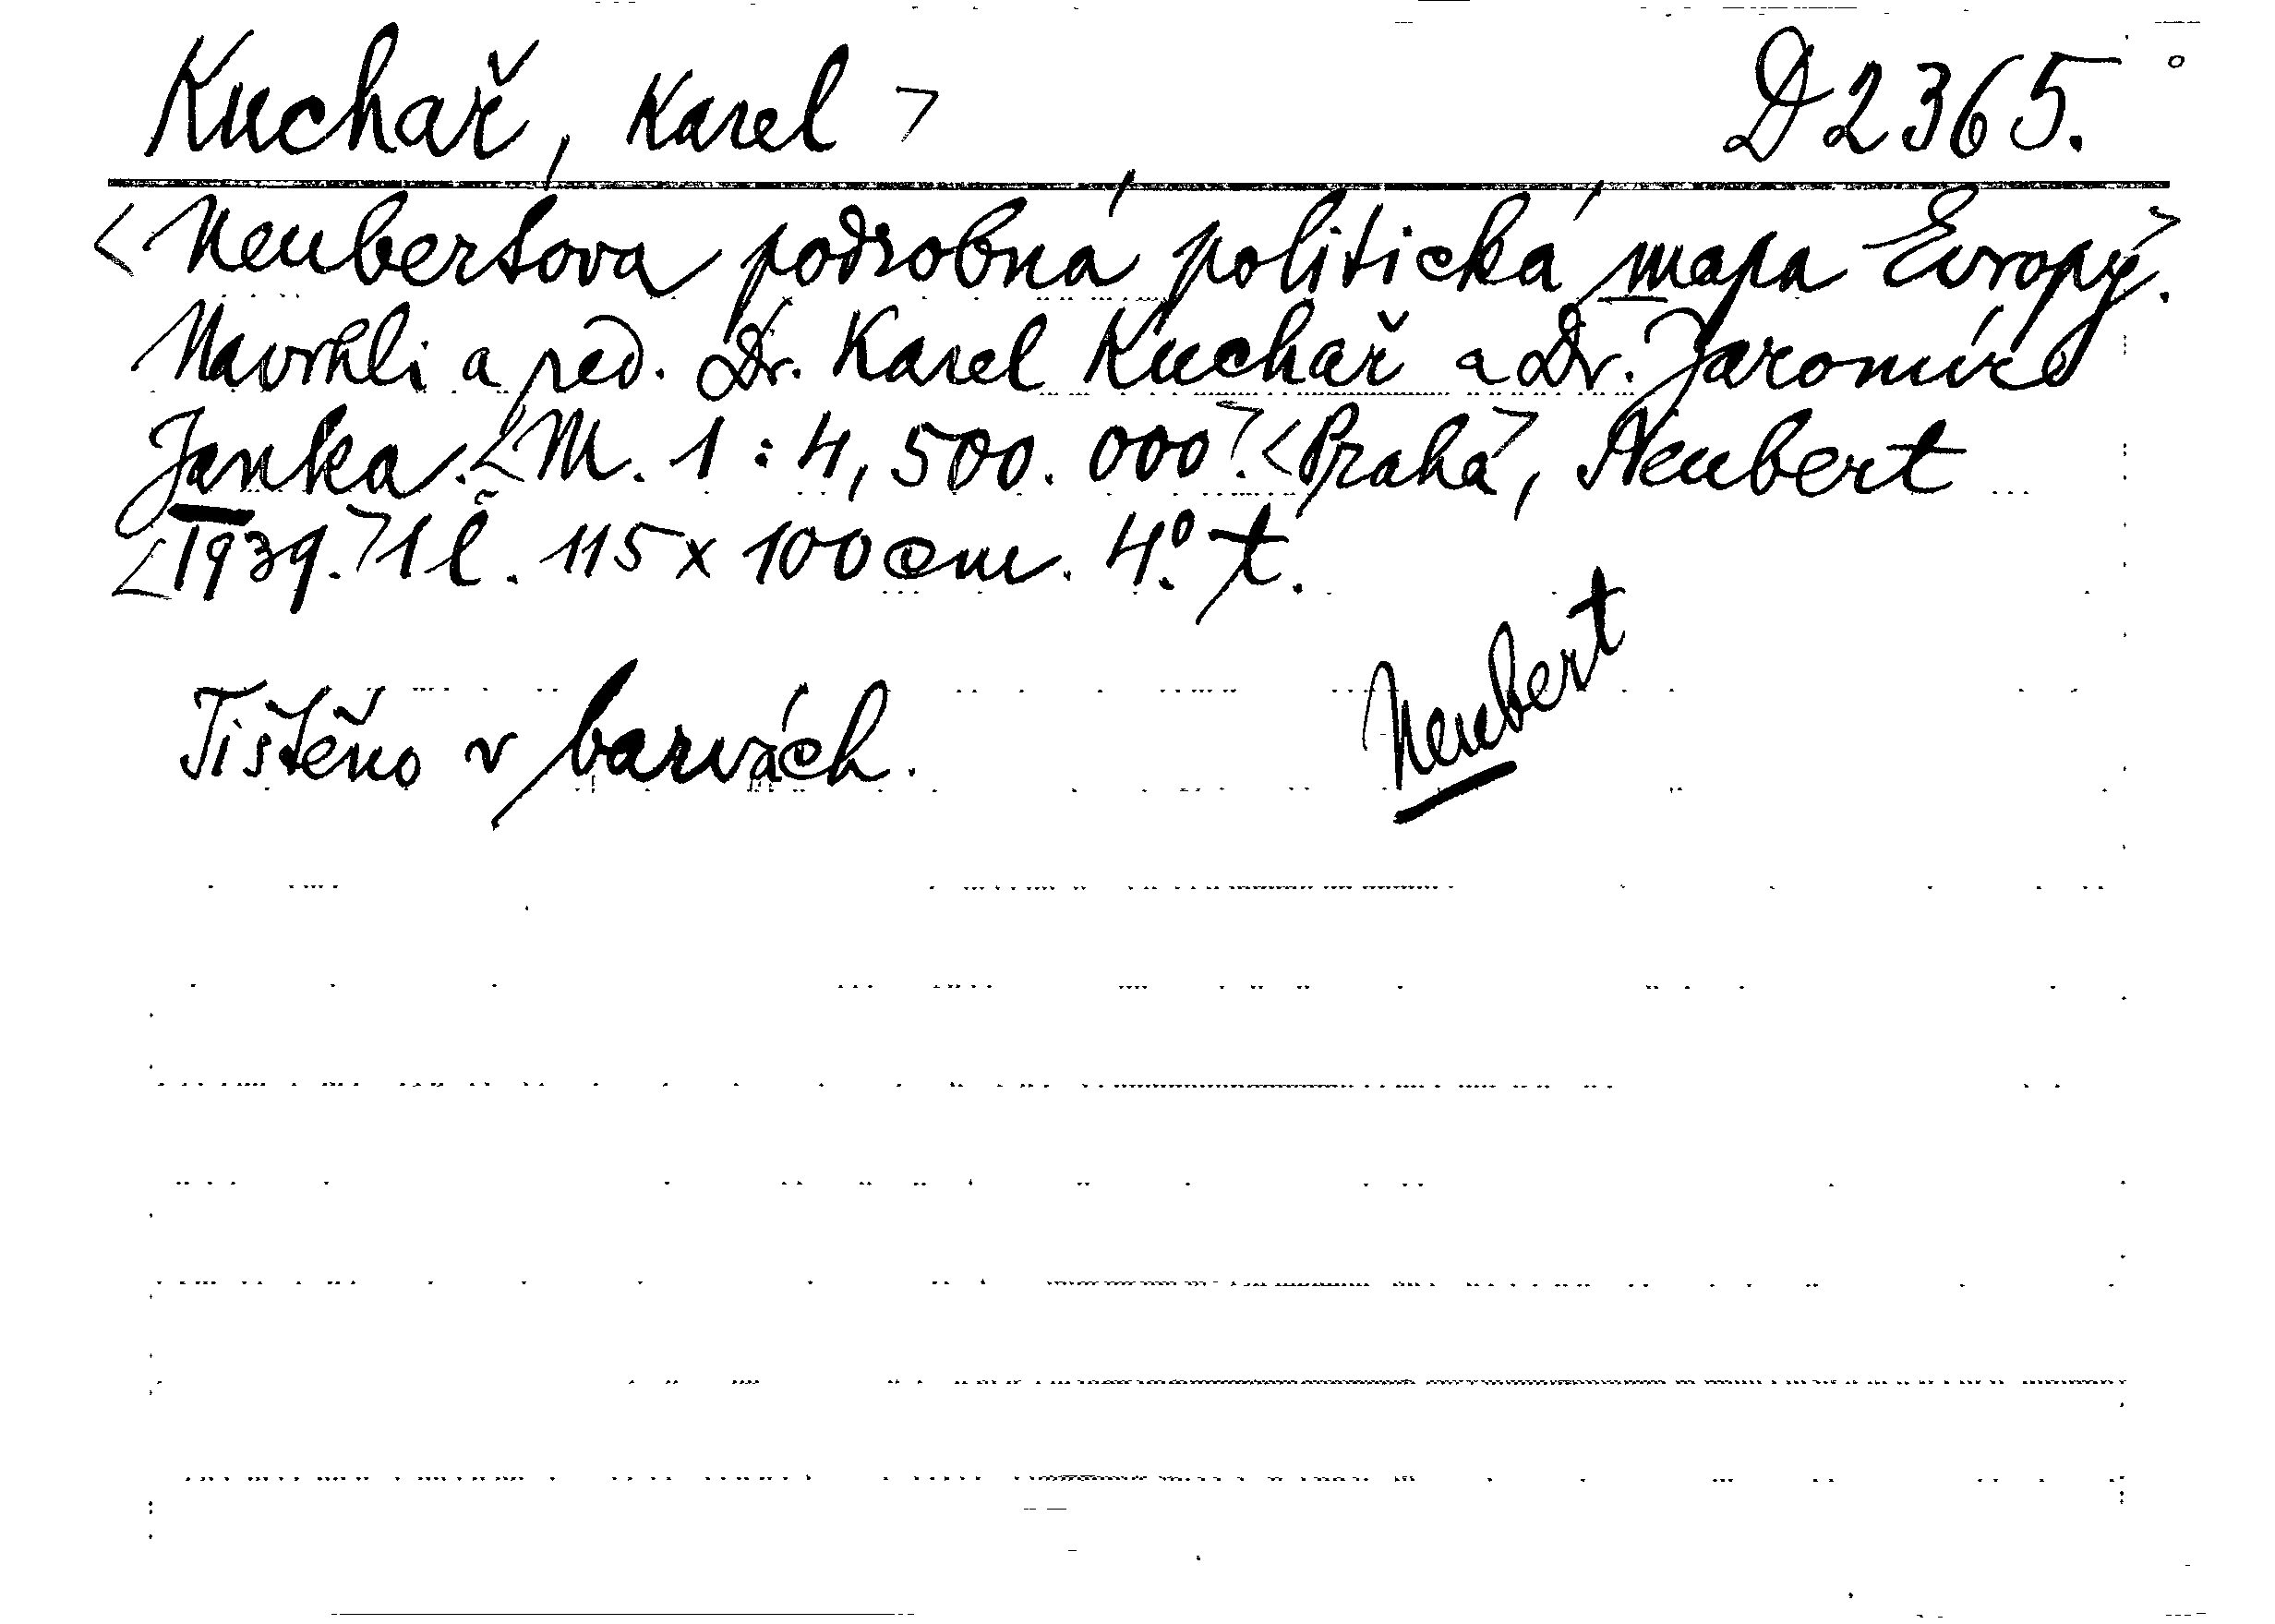 Kuchař, Karel > D 2365.
<Neubertova podrobná politická mapa Evropy>.
Navrhli a red. Dr. Karel Kuchař a Dr. Jaromír
Janka. <M. 1 : 4,500.000>. <Praha>, Neubert
<1939.> 1 l. 115 x 100 cm. 4°. t.
Neubert
Tištěno v barvách.